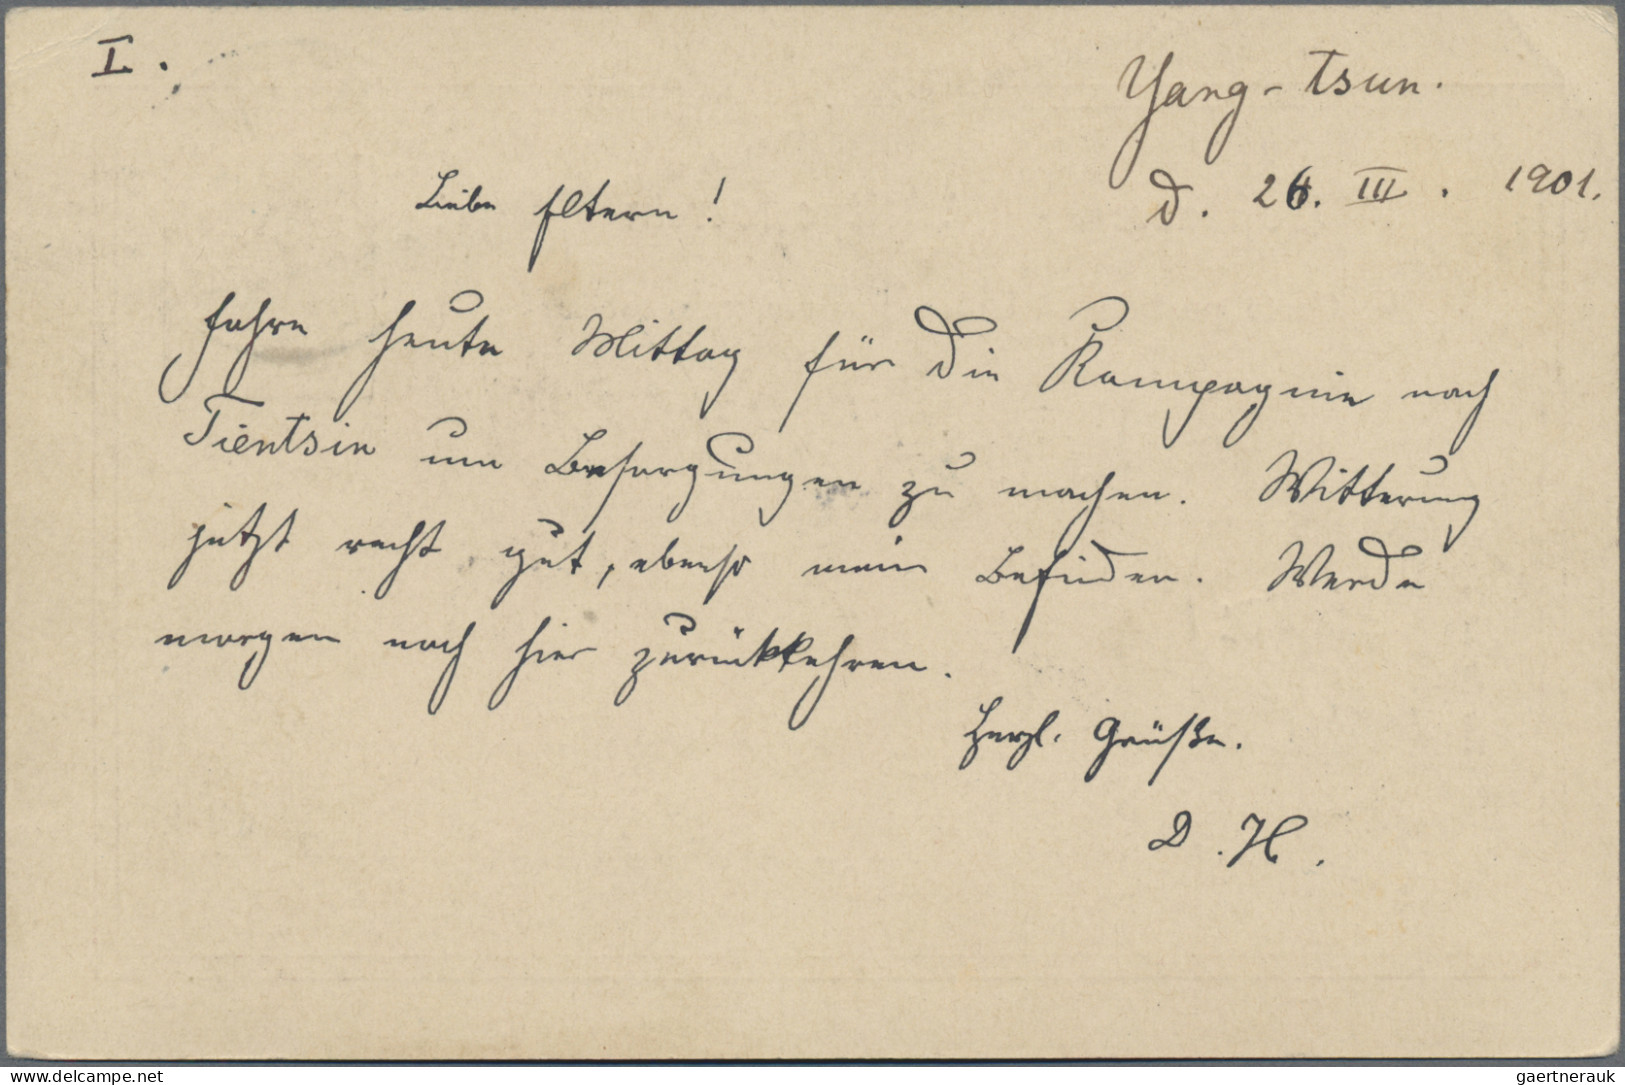 I.
Yang-Tsun.
d. 26. III. 1901.
Liebe Eltern!
Fahre heute Mittag für die Kampagnie nach
Tientsin um Besorgungen zu machen. Witterung
jetzt recht gut, ebenso mein Befinden. Werde
morgen nach hier zurückkehren.
Herzl. Grüße.
D. H.
www.delcampe.net
gaertnerauk